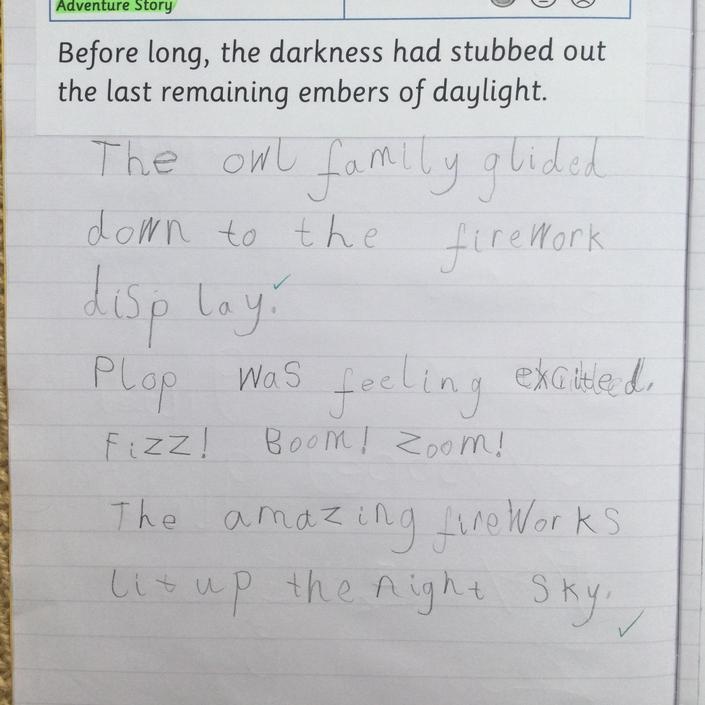 Adventure Story
Before long, the darkness had stubbed out
the last remaining embers of daylight.
The owl family glided
down to the firework
display.
Plop was feeling excited.
Fizz! Boom! Zoom!
The amazing fireworks
lit up the night sky.